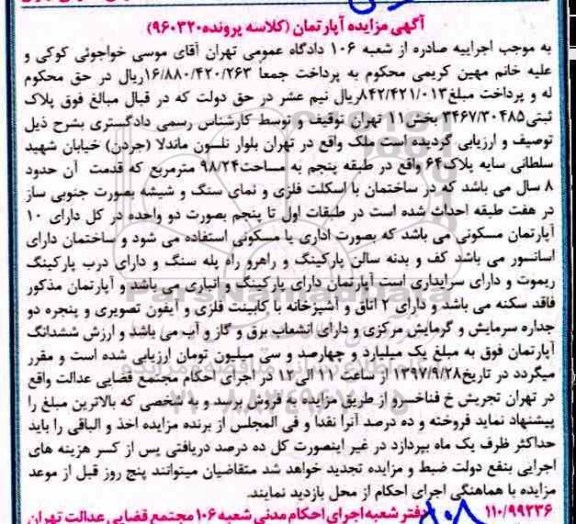 آگهی مزایده آپارتمان (کلاسه پرونده ۹۶۰۳۲۰)
به موجب اجراییه صادره از شعبه ۱۰۶ دادگاه عمومی تهران آقای موسی خواجوئی کوکی و
علیه خانم مهین کریمی محکوم به پرداخت جمعاً ۱۶/۸۸۰/۴۲۰/۲۶۳ریال در حق محکوم
له و پرداخت مبلغ۸۴۲/۴۲۱/۰۱۳ریال نیم عشر در حق دولت که در قبال مبالغ فوق پلاک
ثبتی۳۴۶۷/۳۰۴۸۵ بخش۱۱ تهران توقیف و توسط کارشناس رسمی دادگستری بشرح ذیل
توصیف و ارزیابی گردیده است ملک واقع در تهران بلوار نلسون ماندلا (جردن) خیابان شهید
سلطانی سایه پلاک۶۴ واقع در طبقه پنجم به مساحت۹۸/۲۴ مترمربع که قدمت آن حدود
۸ سال می باشد که در ساختمان با اسکلت فلزی و نمای سنگ و شیشه بصورت جنوبی ساز
در هفت طبقه احداث شده است در طبقات اول تا پنجم بصورت دو واحده در کل دارای ۱۰
آپارتمان مسکونی می باشد که بصورت اداری یا مسکونی استفاده می شود و ساختمان دارای
آسانسور می باشد کف و بدنه سالن پارکینگ و راهرو راه پله سنگ و دارای درب پارکینگ
ریموت و دارای سرایداری است آپارتمان دارای پارکینگ و انباری می باشد و آپارتمان مذکور
فاقد سکنه می باشد و دارای ۲ اتاق و آشپزخانه با کابینت فلزی و آیفون تصویری و پنجره دو
جداره سرمایش و گرمایش مرکزی و دارای انشعاب برق و گاز و آب می باشد و ارزش ششدانگ
آپارتمان فوق به مبلغ یک میلیارد و چهارصد و سی میلیون تومان ارزیابی شده است و مقرر
میگردد در تاریخ۱۳۹۷/۹/۲۸ از ساعت ۱۱ الی۱۲ در اجرای احکام مجتمع قضایی عدالت واقع
در تهران تجریش خ فناخسرو از طریق مزایده به فروش برسد و به شخصی که بالاترین مبلغ را
پیشنهاد نماید فروخته و ده درصد آنرا نقدا و فی المجلس از برنده مزایده اخذ و الباقی را باید
حداکثر ظرف یک ماه بپردازد در غیر اینصورت کل ده درصد دریافتی پس از کسر هزینه های
اجرایی بنفع دولت ضبط و مزایده تجدید خواهد شد متقاضیان میتوانند پنج روز قبل از موعد
مزایده با هماهنگی اجرای احکام از محل بازدید نمایند.
۱۱۰/۹۹۲۳۶ دفتر شعبه اجرای احکام مدنی شعبه ۱۰۶ مجتمع قضایی عدالت تهران